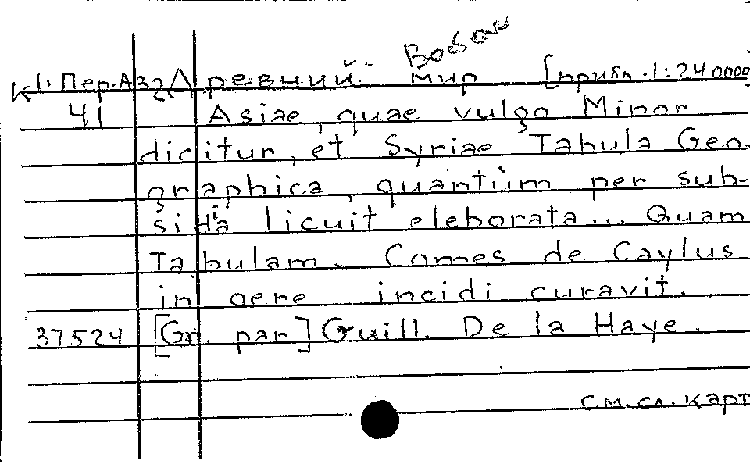 К 1. Пер.Аз 2 Древний мир [прибл. 1:2400000
41 Asiae, quae vulgo Minor
dicitur, et Syriae Tabula Geo-
graphica, quantum per sub-
sidia licuit eleborata... Quam
Tabulam. Comes de Caylus
in aere incidi curavit.
37524 [Gr. par] Guill. De la Haye.
см. сл. карт